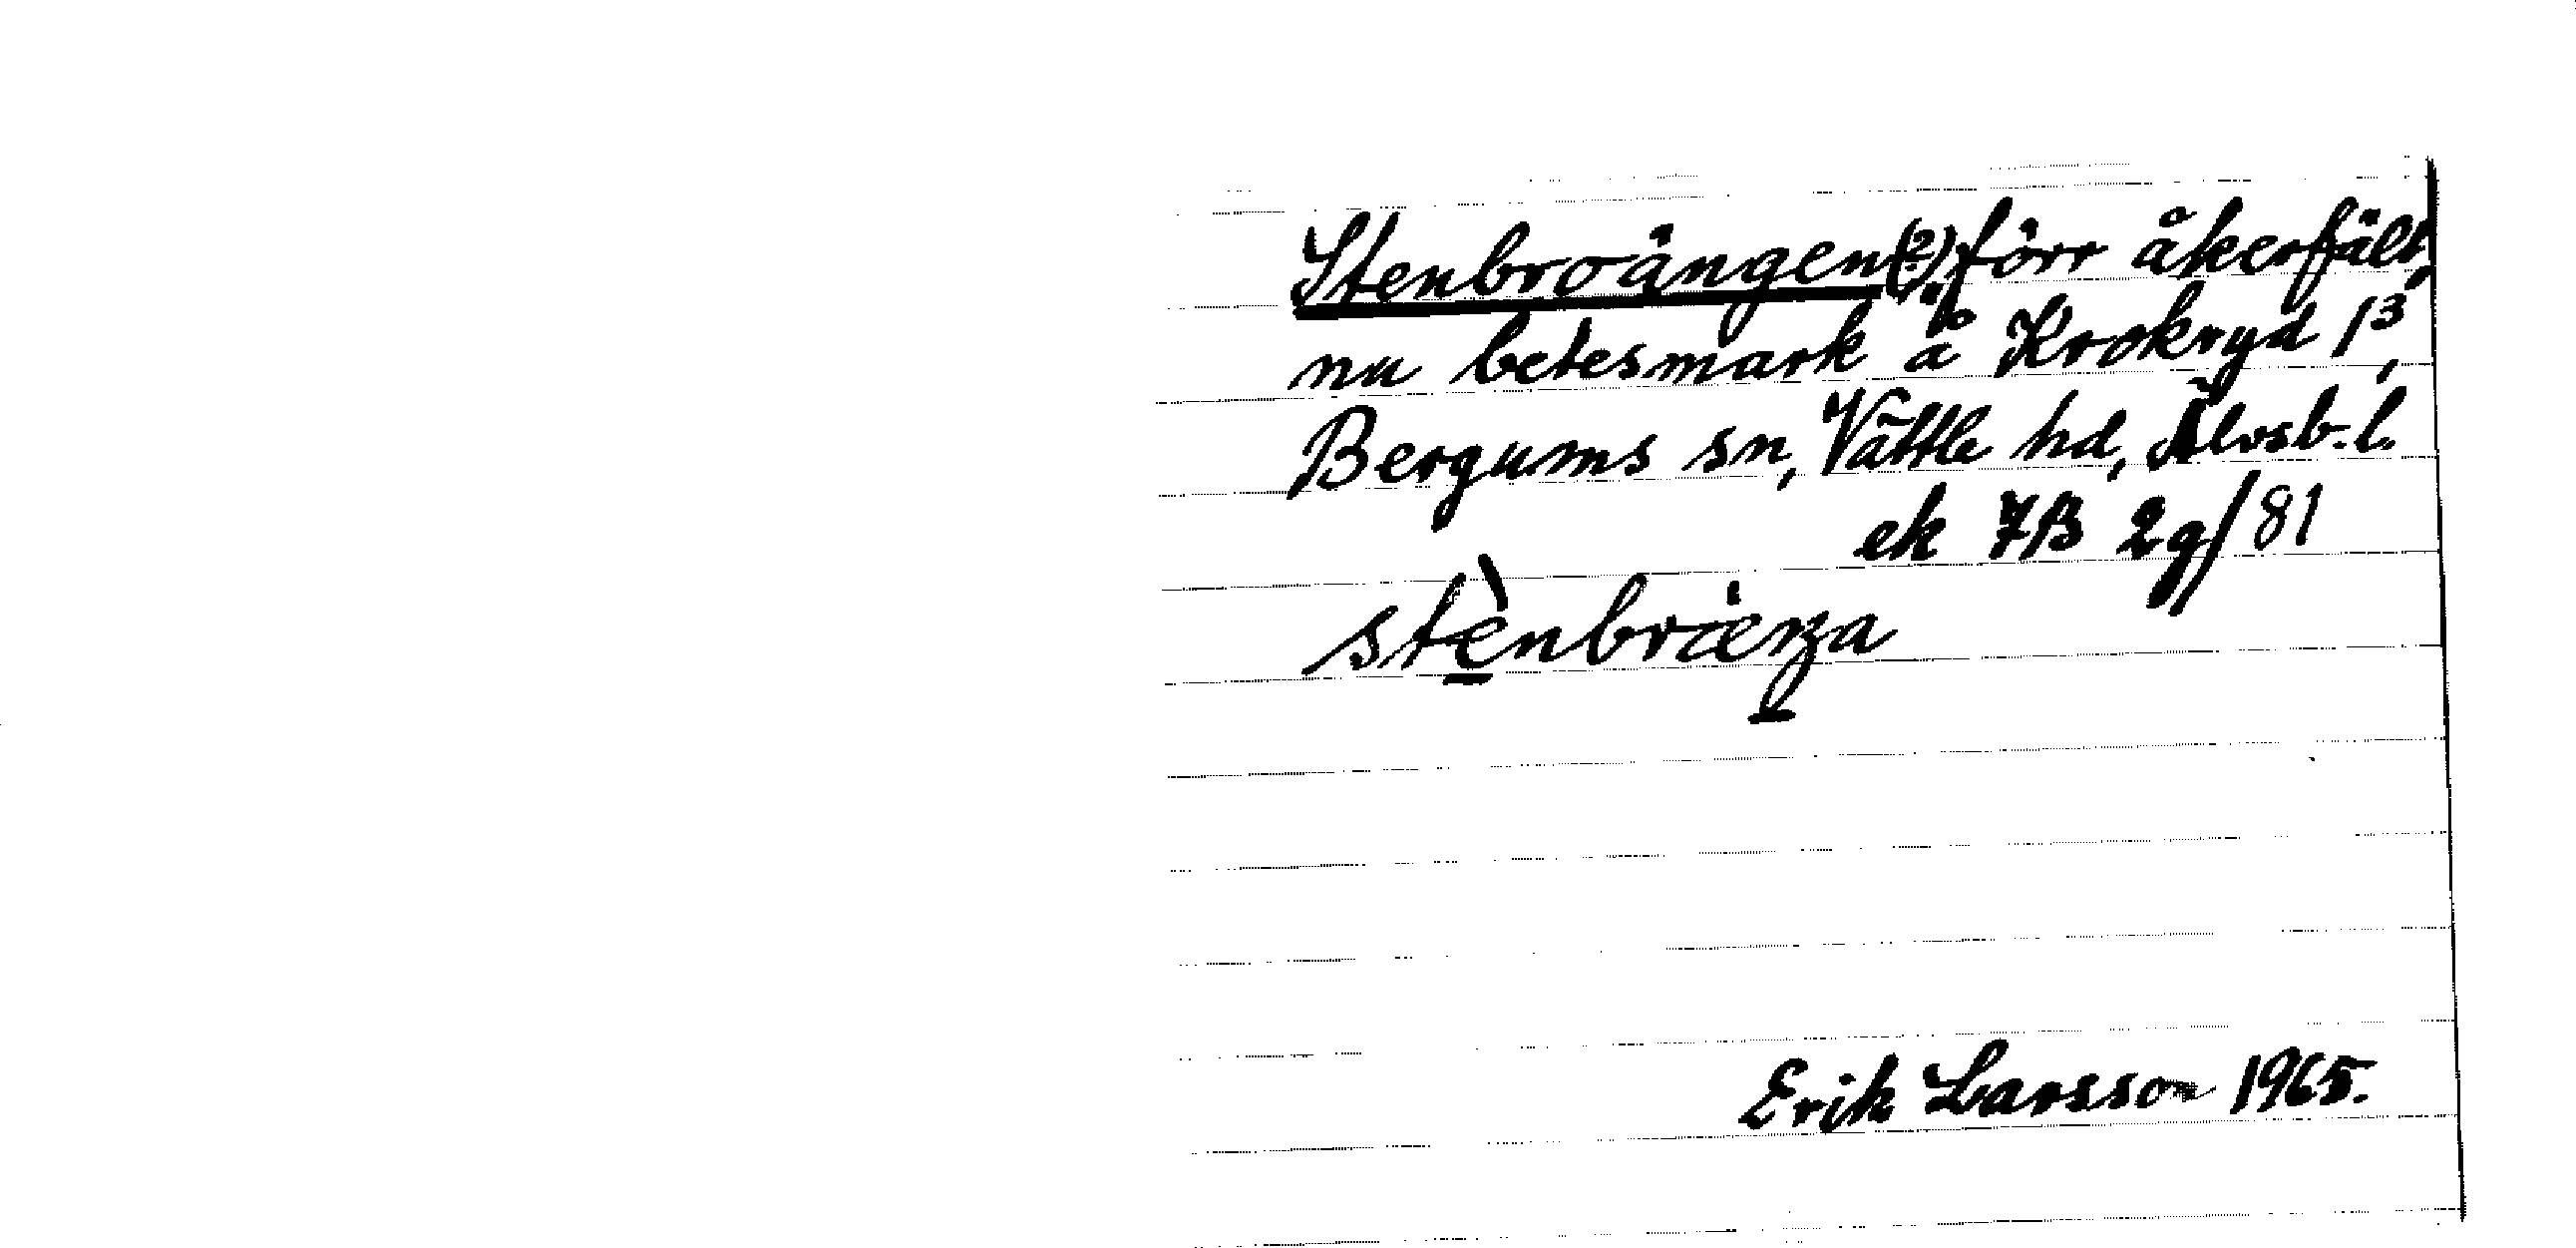 Stenbroängen(?), förr åkerfält,
nu betesmark å Krokryd 1³,
Bergums sn, Vättle hd, Älvsb. l.
ek 7B 2g/81
stènbræŋa
Erik Larsson 1965.